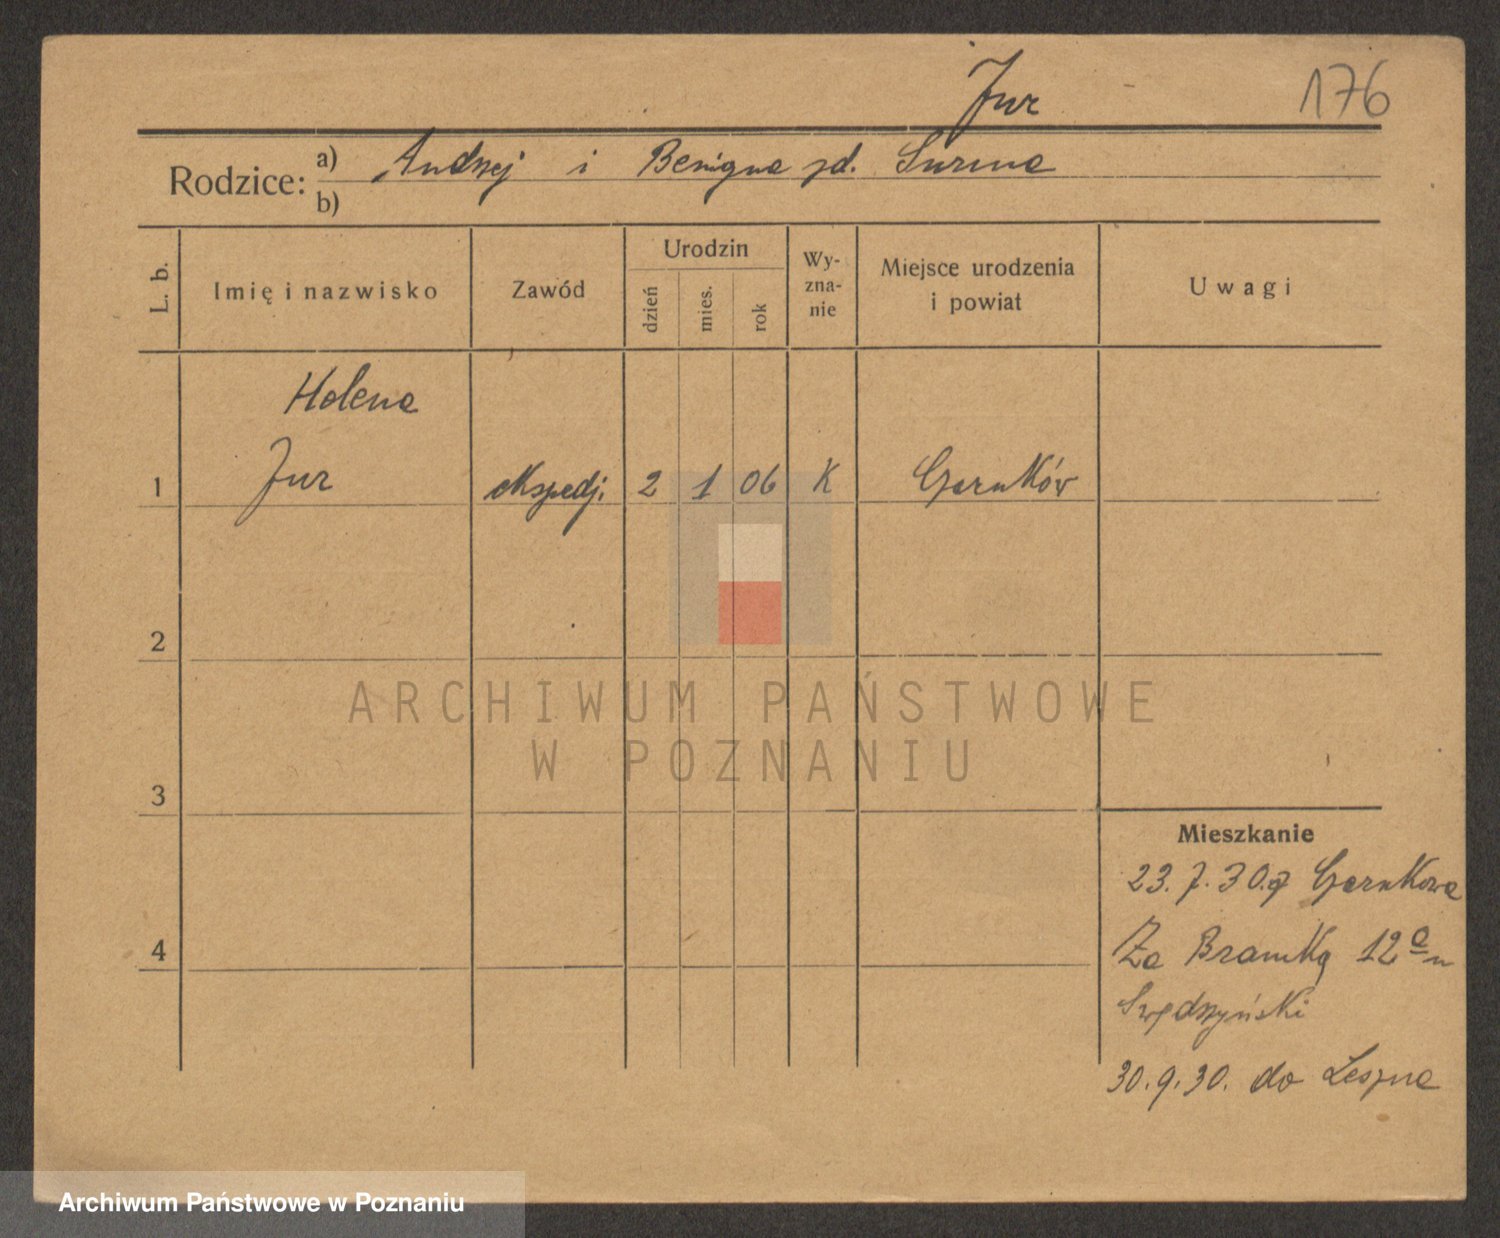 Jur
176
Rodzice: a) Andrzej i Benigna zd. Surma
b)
L. b.
Imię i nazwisko
Zawód
Urodzin
dzień
mies.
rok
Wy-
zna-
nie
Miejsce urodzenia
i powiat
Uwagi
Helena
1 Jur ekspedj. 2 1 06 K Czarnków
2
3
4
Mieszkanie
23.7.30 z Czarnkowa
Za Bramką 12a
30.9.30. do Leszna
ARCHIWUM PAŃSTWOWE
W POZNANIU
Archiwum Państwowe w Poznaniu